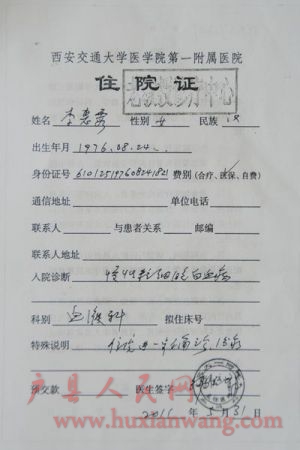 西安交通大学医学院第一附属医院
住院证
姓名 李惠 性别 女 民族 汉
出生年月 1976.08.24.
身份证号 费别(合疗、医保、自费)
通信地址 单位电话
联系人 与患者关系 邮编
联系人地址
入院诊断 慢性粒细胞白血病
科别 血液科 拟住床号
特殊说明 住院进一步
预交款 医生签字
2011 年 5 月 31 日
户县人民网
www.huxianwang.com